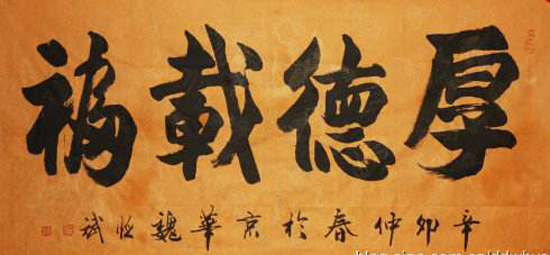 厚德載福
辛卯仲春於京華魏恒斌
blog.sina.com.cn